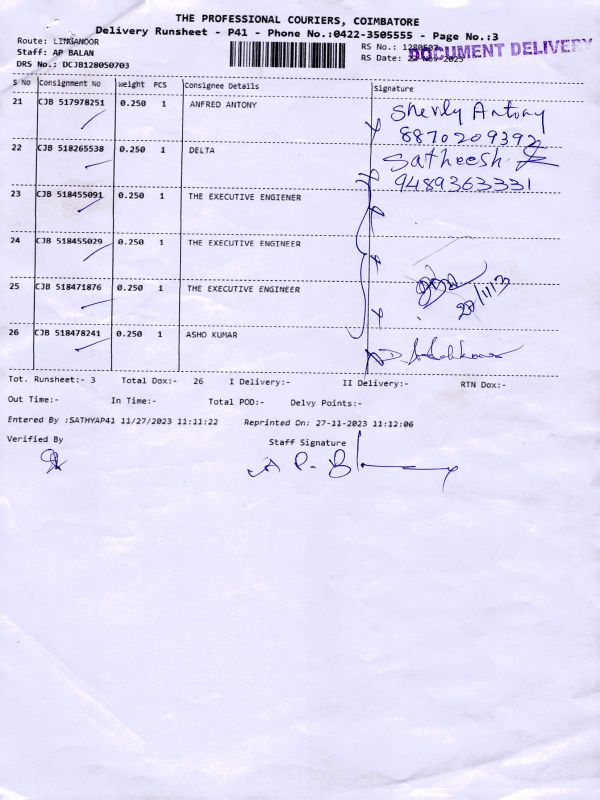 THE PROFESSIONAL COURIERS, COIMBATORE
Delivery Runsheet - P41 - Phone No.:0422-3505555 - Page No.:3
Route: LINGANOOR
Staff: AP BALAN
DRS No.: DCJB128050703
RS No.:
RS Date:
DOCUMENT DELIVERY
S No Consignment No Weight PCS Consignee Details Signature
21 CJB 517978251 0.250 1 ANFRED ANTONY Sherly Antony
8870209392
22 CJB 518265538 0.250 1 DELTA Satheesh
9489363331
23 CJB 518455091 0.250 1 THE EXECUTIVE ENGIENER
24 CJB 518455029 0.250 1 THE EXECUTIVE ENGINEER
25 CJB 518471876 0.250 1 THE EXECUTIVE ENGINEER
26 CJB 518478241 0.250 1 ASHO KUMAR
Tot. Runsheet:- 3 Total Dox:- 26 I Delivery:- II Delivery:- RTN Dox:-
Out Time:- In Time:- Total POD:- Delvy Points:-
Entered By :SATHYAP41 11/27/2023 11:11:22 Reprinted On: 27-11-2023 11:12:06
Verified By Staff Signature
A P. B